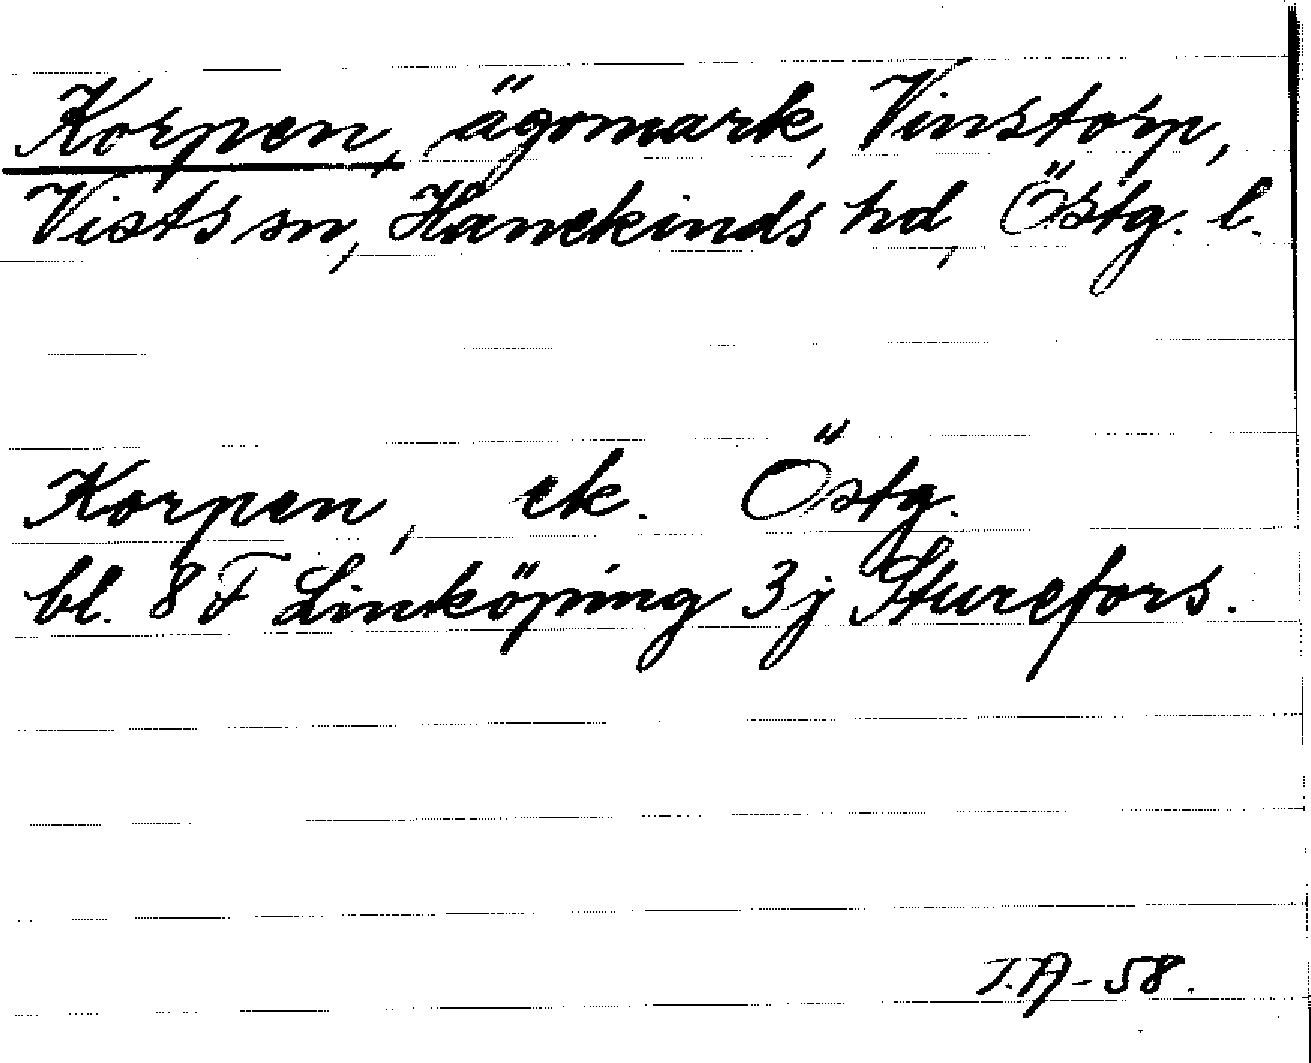 Korpen, ägomark, Vinstorp,
Vists sn, Hanekinds hd, Östg. l.
Korpen, ek. Östg.
bl. 8 F Linköping 3j Sturefors.
I.A-58.